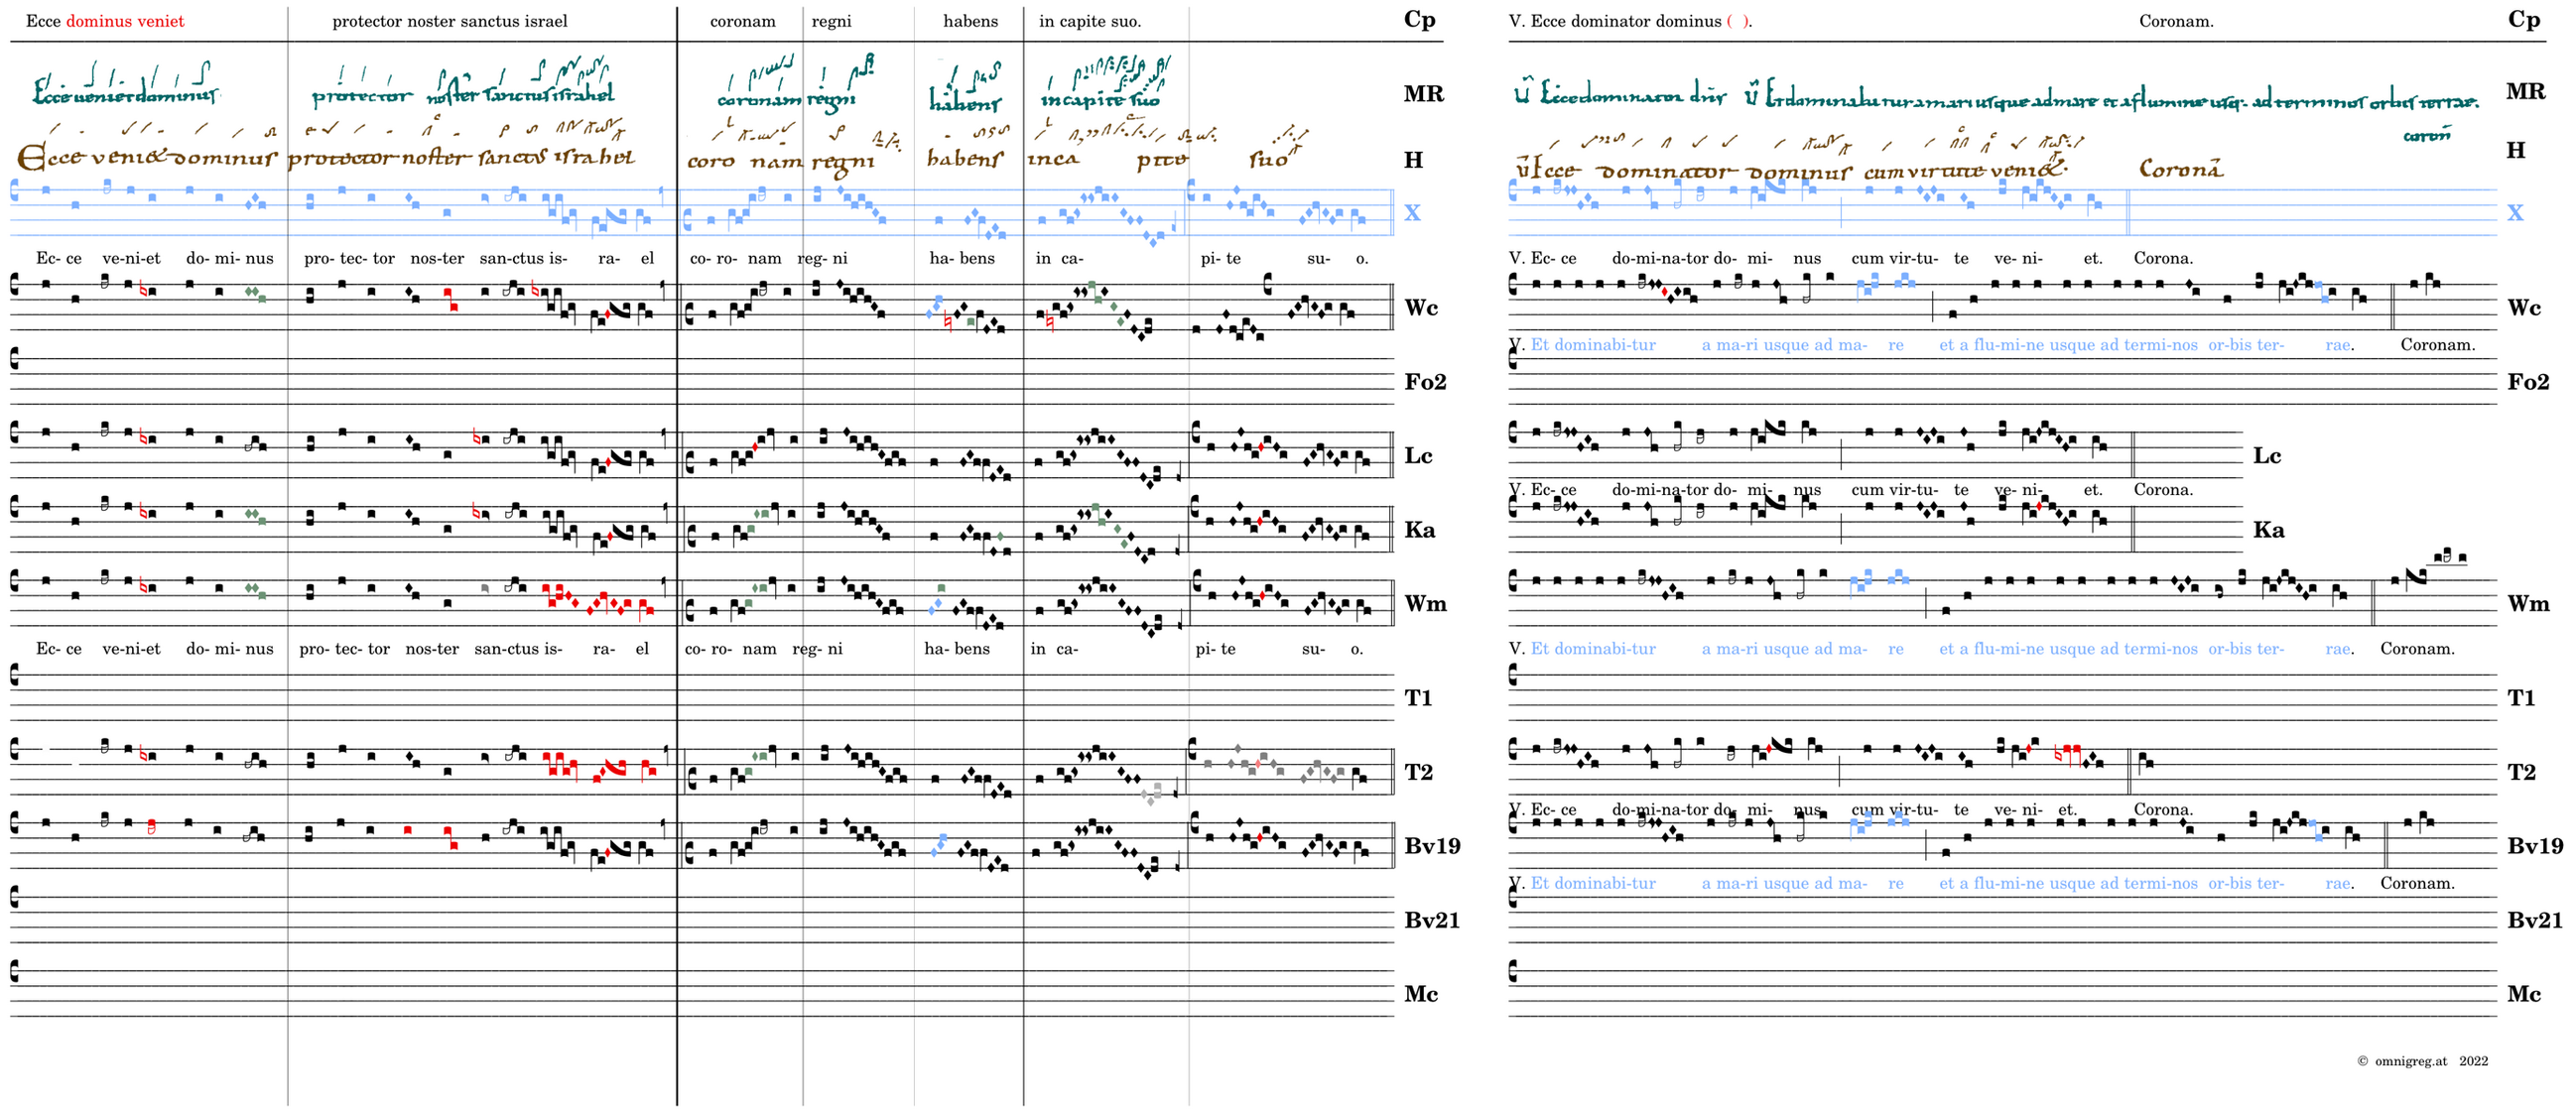 Ecce dominus veniet protector noster sanctus israel coronam regni habens in capite suo. Cp
Ecce ueniet dominus protector noster sanctus israhel coronam regni habens in capite suo MR
Ecce veniet dominus protector noster sanctus israhel coro nam regni habens inca pite suo H
X
Ec- ce ve-ni-et do- mi- nus pro- tec- tor nos-ter san-ctus is- ra- el co- ro- nam reg- ni ha- bens in ca- pi- te su- o.
Wc
Fo2
Lc
Ka
Wm
Ec- ce ve-ni-et do- mi- nus pro- tec- tor nos-ter san-ctus is- ra- el co- ro- nam reg- ni ha- bens in ca- pi- te su- o.
T1
T2
Bv19
Bv21
Mc
V. Ecce dominator dominus ( ). Coronam. Cp
Ecce dominator Et dominabitur a mari usque ad mare et a flumine usq. ad terminos orbis terrae. MR
coron
Ecce dominator dominus cum virtute veniet. Corona H
X
V. Ec- ce do-mi-na-tor do- mi- nus cum vir-tu- te ve- ni- et. Corona.
Wc
V. Et dominabi-tur a ma-ri usque ad ma- re et a flu-mi-ne usque ad termi-nos or-bis ter- rae. Coronam.
Fo2
Lc
V. Ec- ce do-mi-na-tor do- mi- nus cum vir-tu- te ve- ni- et. Corona.
Ka
Wm
V. Et dominabi-tur a ma-ri usque ad ma- re et a flu-mi-ne usque ad termi-nos or-bis ter- rae. Coronam.
T1
T2
V. Ec- ce do-mi-na-tor do- mi- nus cum vir-tu- te ve- ni- et. Corona.
Bv19
V. Et dominabi-tur a ma-ri usque ad ma- re et a flu-mi-ne usque ad termi-nos or-bis ter- rae. Coronam.
Bv21
Mc
© omnigreg.at 2022